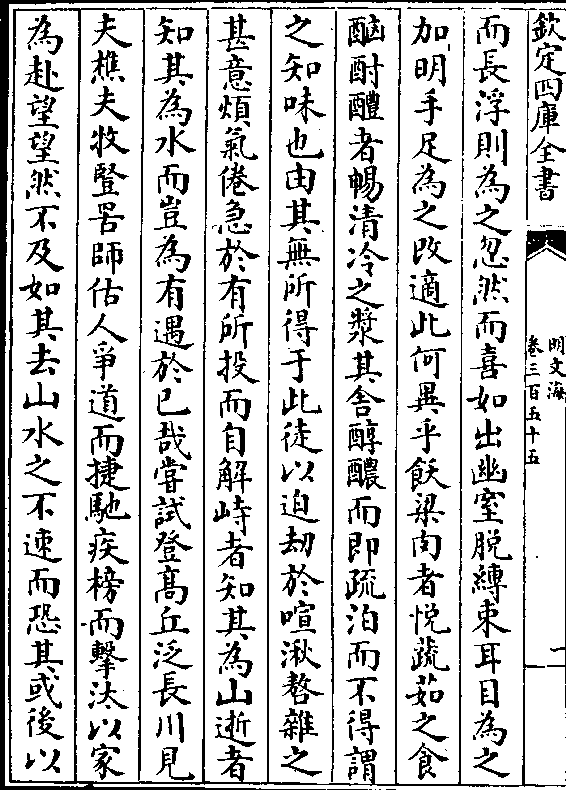 欽定四庫全書
明文海
卷三百五十五
一
而長浮則為之忽然而喜如出幽室脫縛束耳目為之
加明手足為之改適此何異乎飫粱肉者悅蔬茹之食
酗酎醴者暢清冷之漿其舍醇醲而即疏泊而不得謂
之知味也由其無所得于此徒以迫劫於喧湫嗸雜之
甚意煩氣倦急於有所投而自解峙者知其為山逝者
知其為水而豈為有遇於已哉嘗試登高丘泛長川見
夫樵夫牧豎罟師估人爭道而捷馳疾榜而擊汰以家
為赴望望然不及如其去山水之不速而恐其或後以